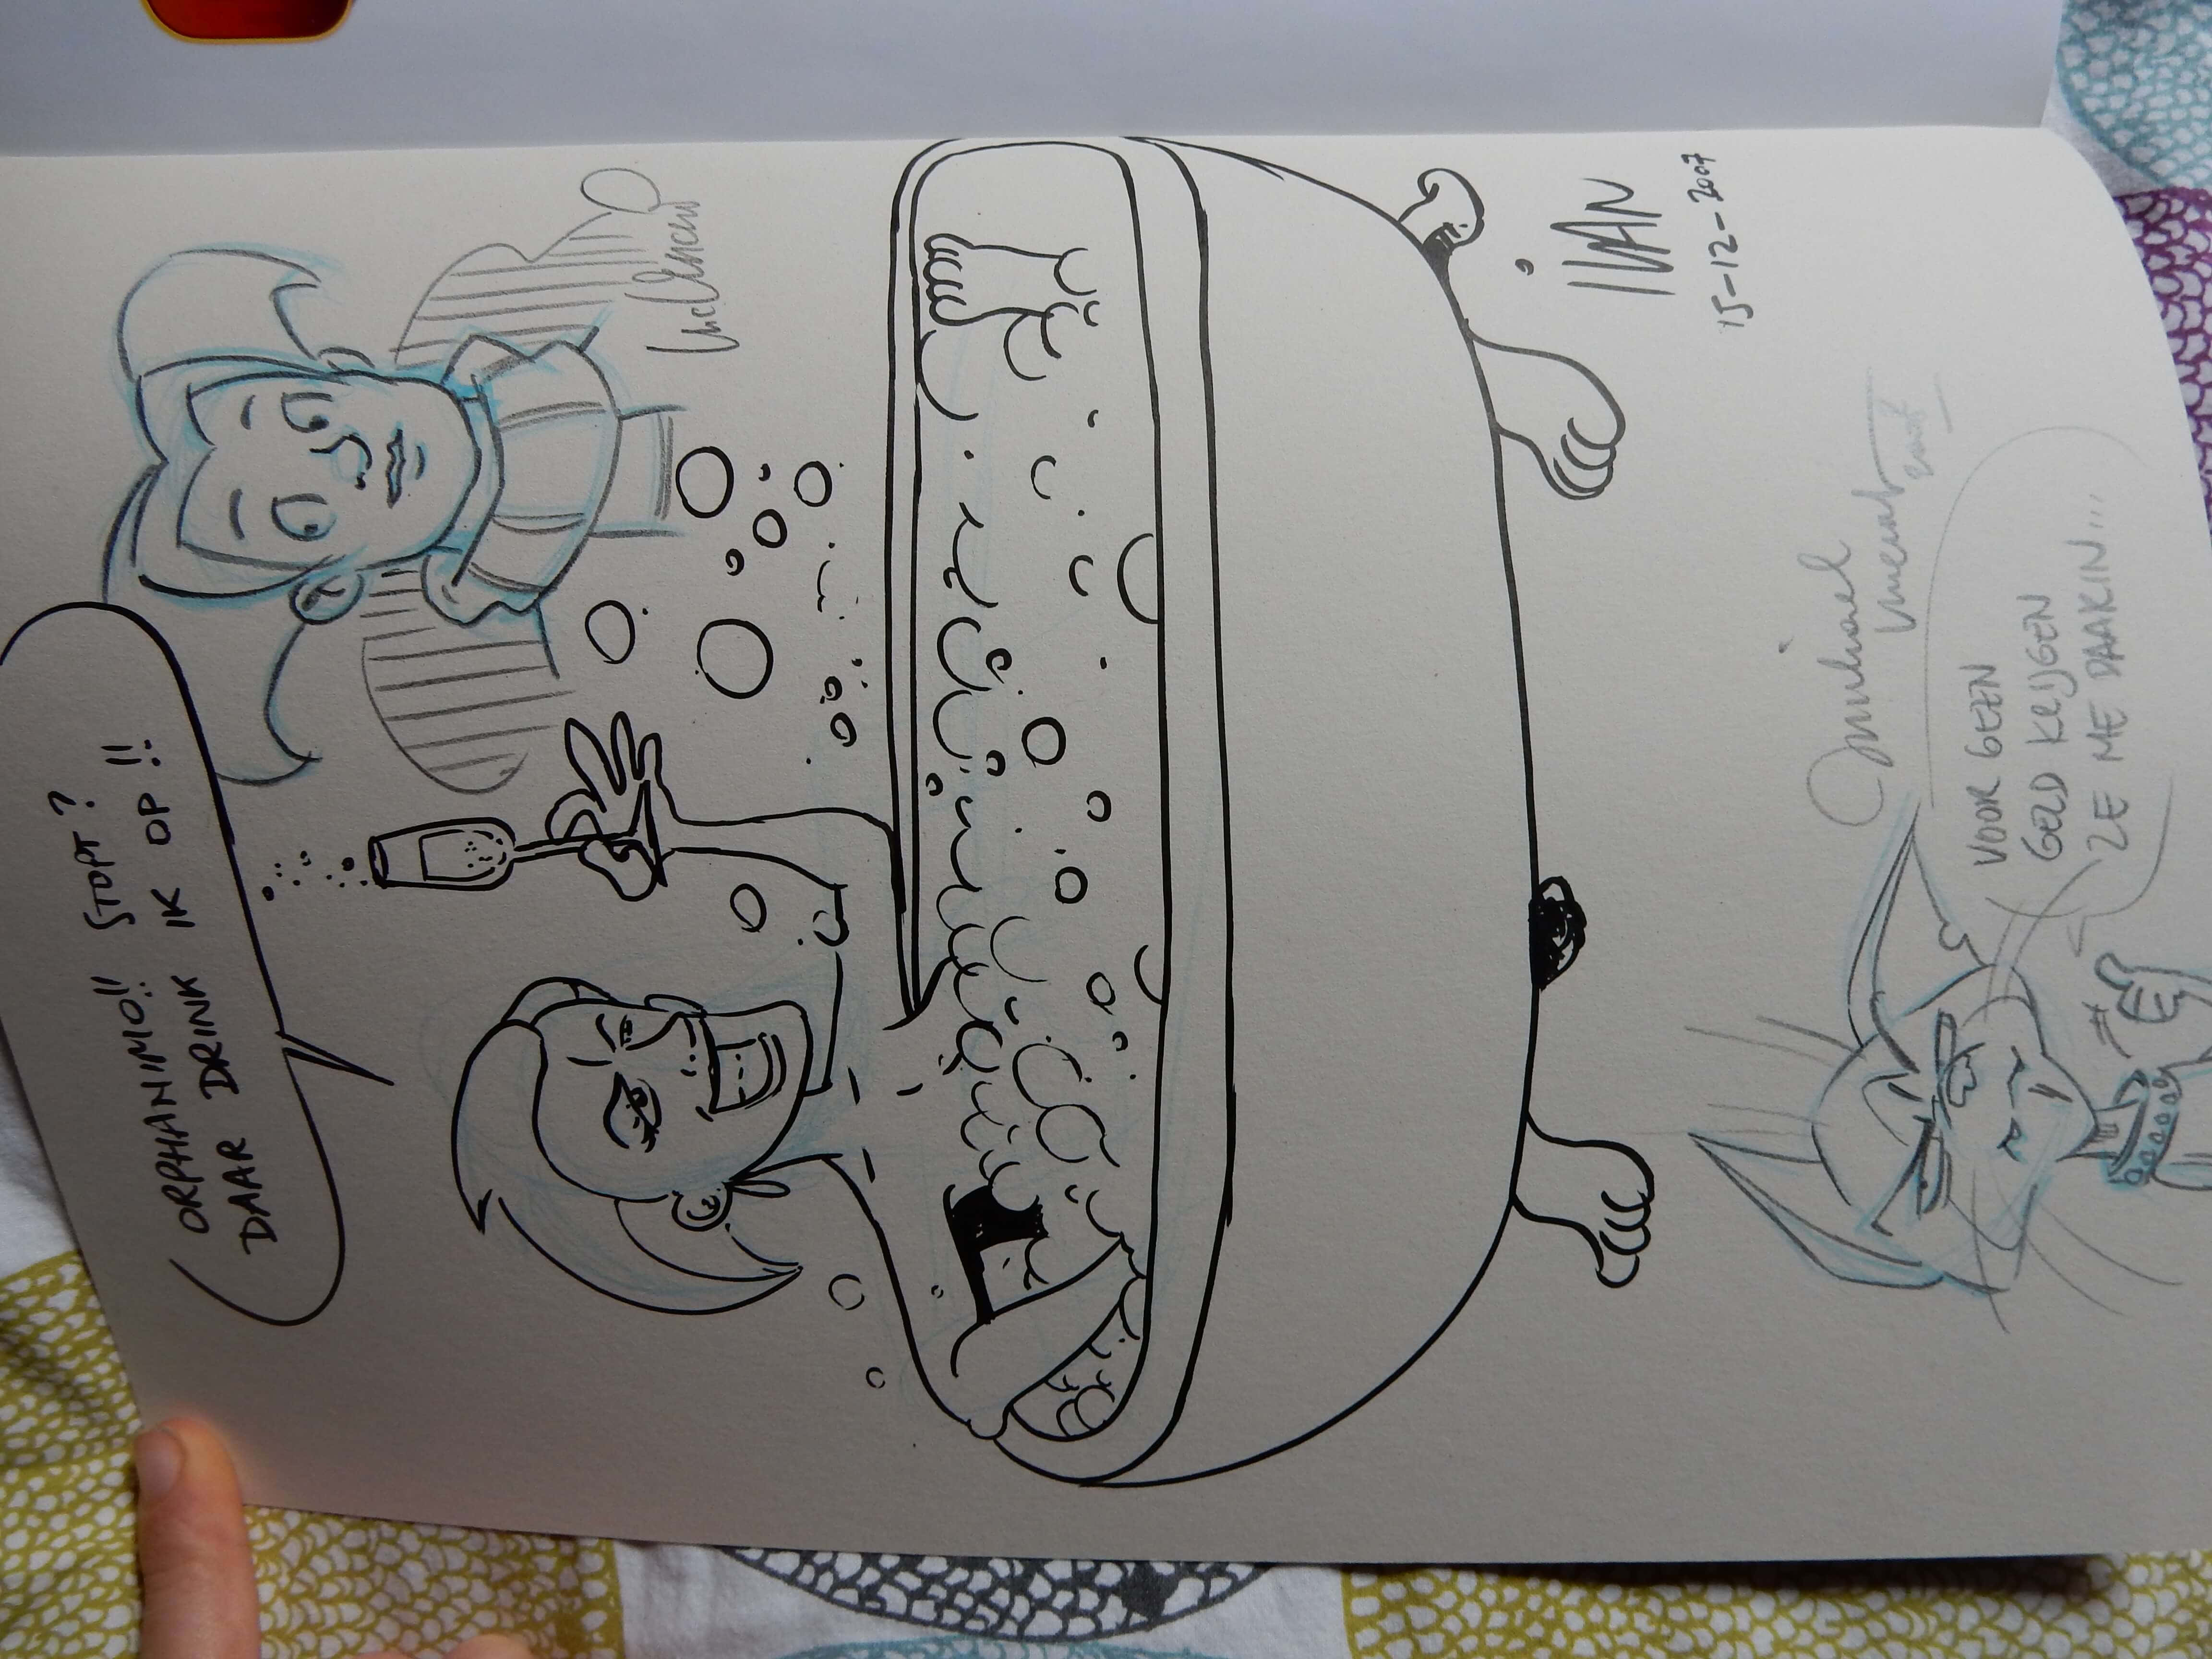 ORPHANIMO!! STOPT?
DAAR DRINK IK OP!!
IVAN
15-12-2007
Michael
Vincent
VOOR GEEN
GELD KRIJGEN
ZE ME DAARIN...